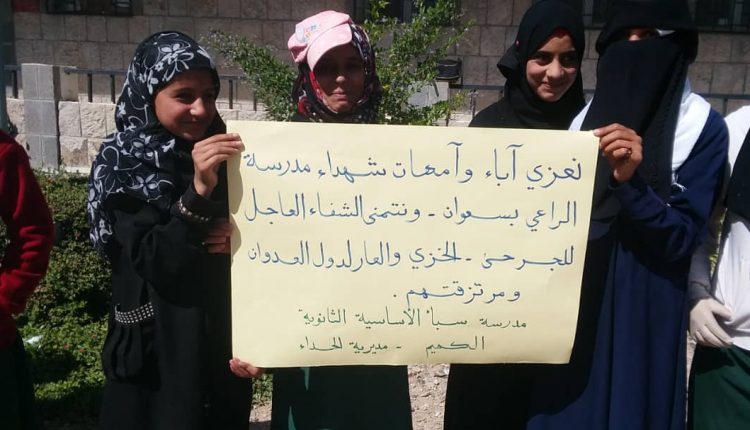 نعزي آباء وآمهات شهداء مدرسة
الراعي بسعوان - ونتمنى الشفاء العاجل
للجرحى - الخزي والعار لدول العدوان
ومرتزقتهم .
مدرسة سبأ الأساسية الثانوية
الكميم - مديرية الحداء